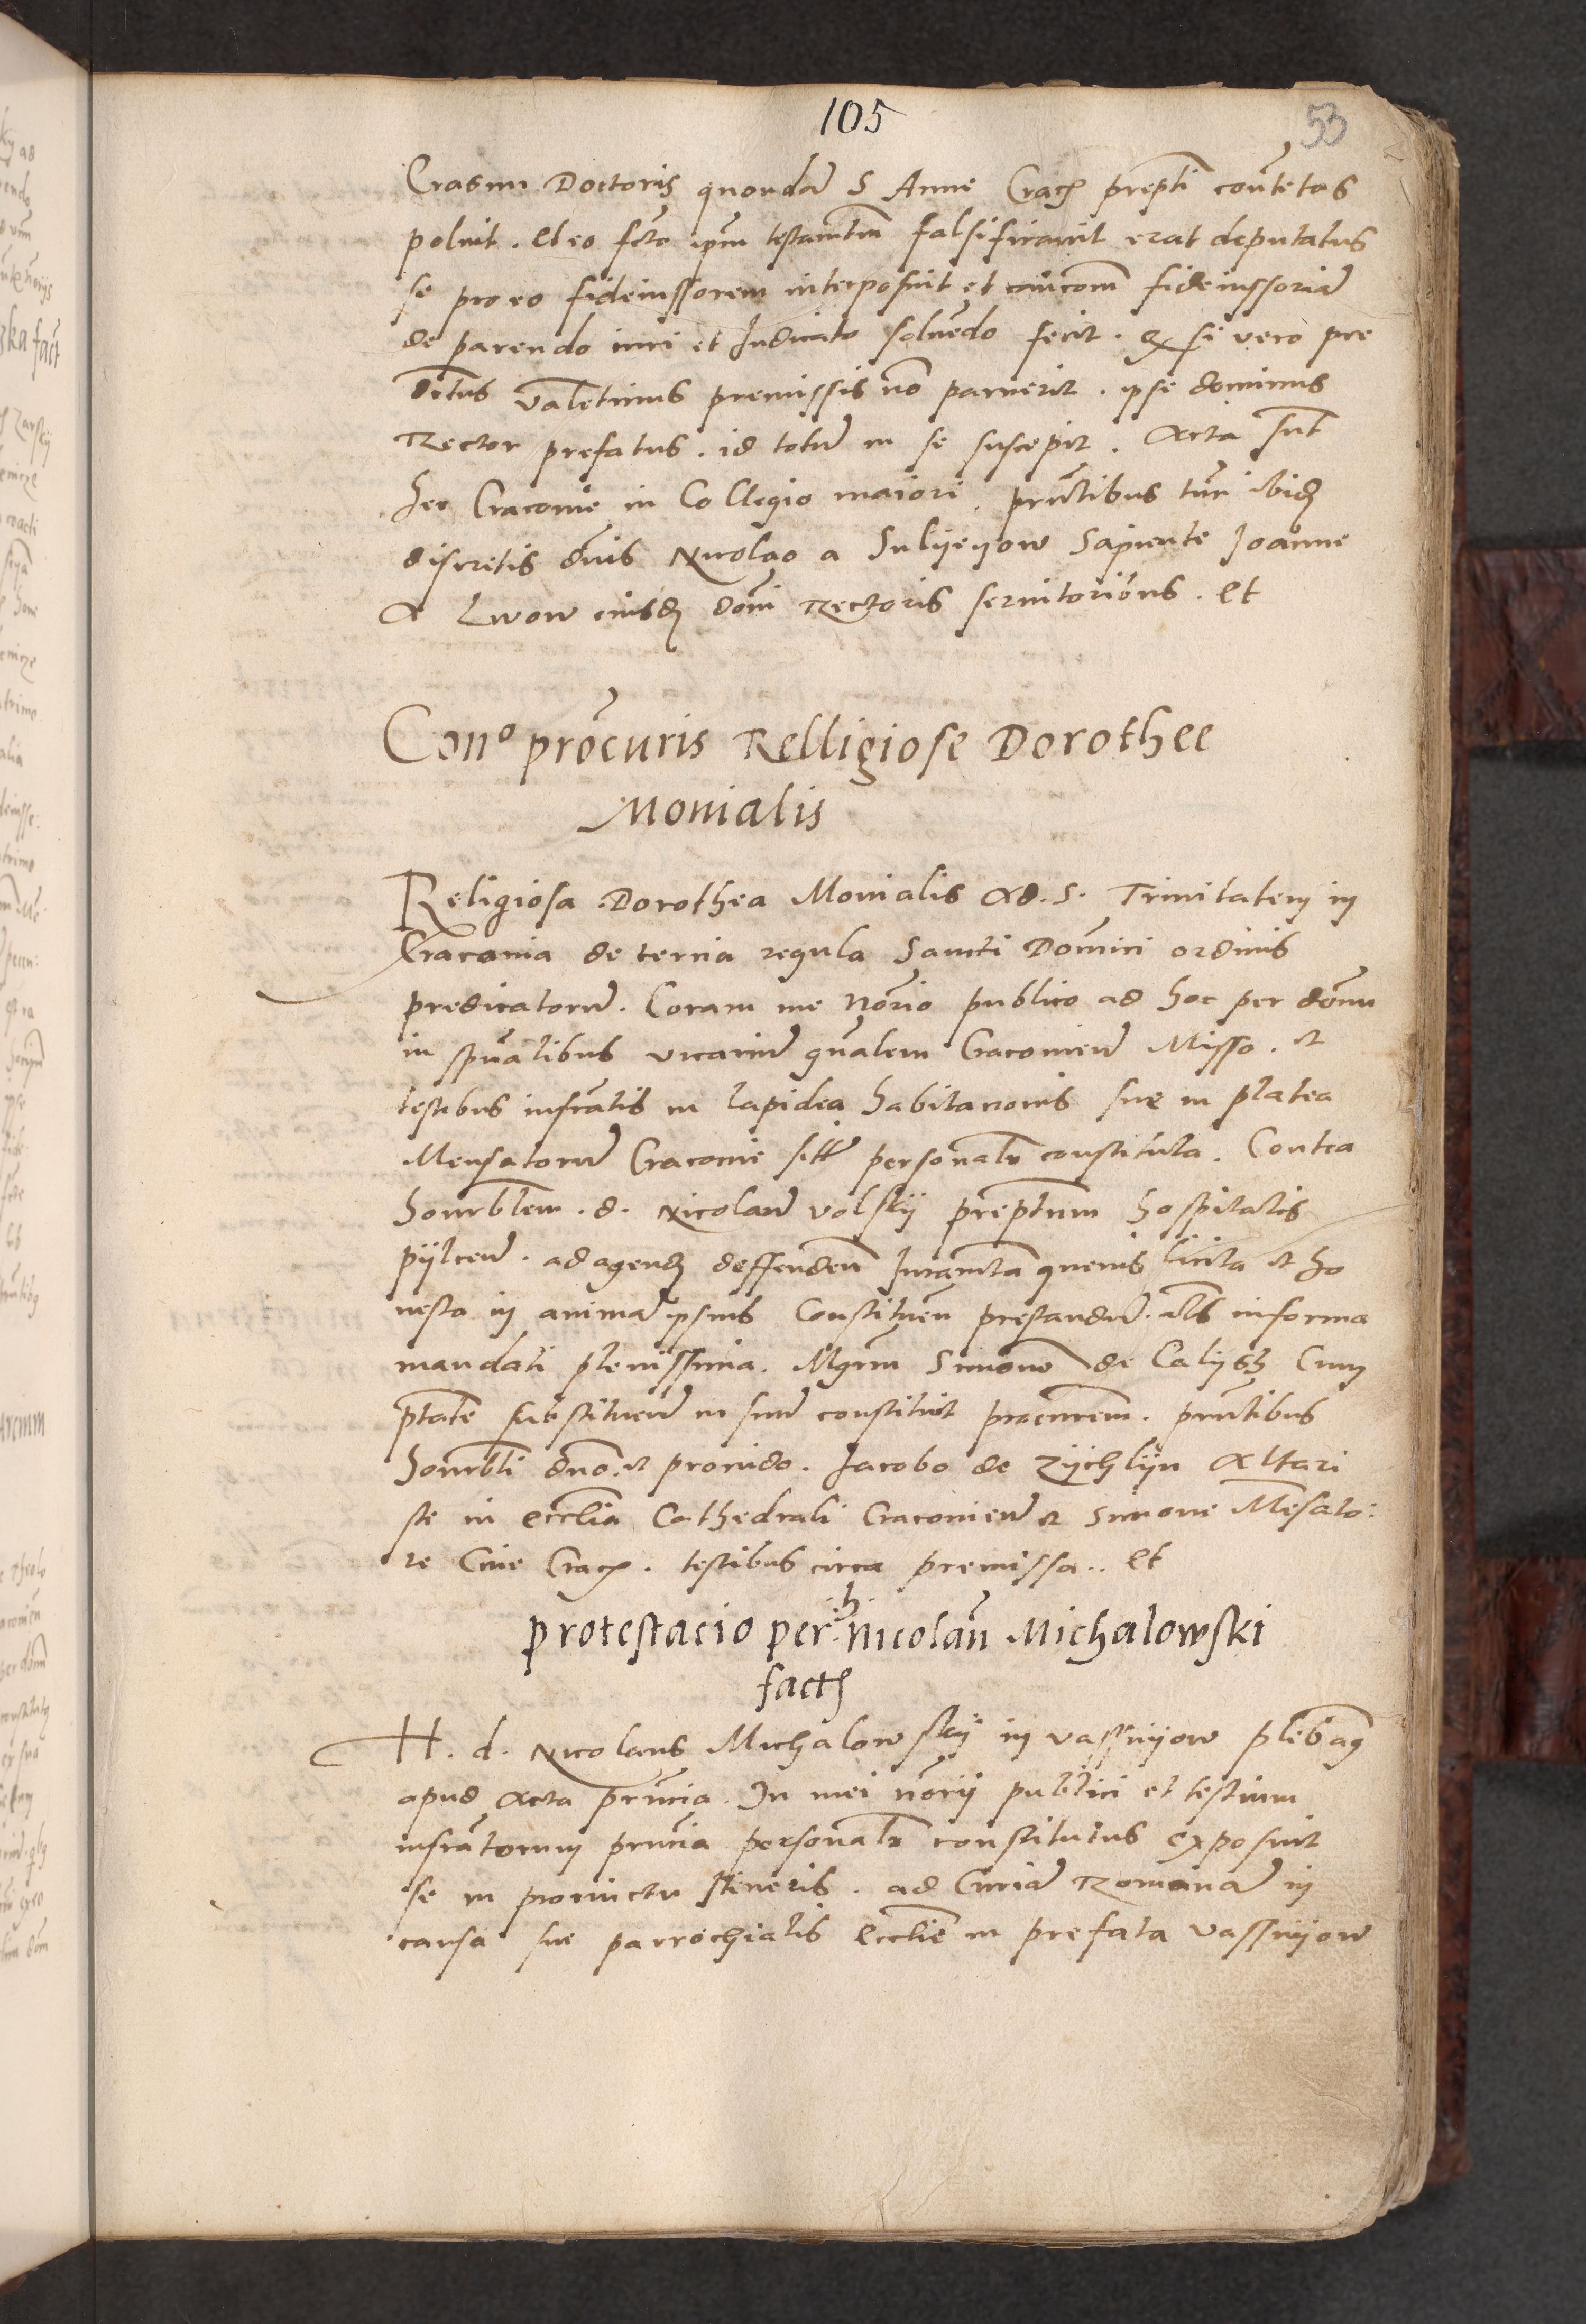 105
53
Erasmi Doctoris quondã S Anne Crac prepti contẽtas
poluit . Et eo fcto ipm testamtm falsificavit erat deputatus
se pro eo fideiussorem interposuit et fideiussoriã
de parendo iuri et Iudicato solvẽdo fecit . si vero pre
dctus valẽtinus premissis nõ paruerit . ipse dominus
Rector prefatus . id totũ in se suscepit . Acta sũt
hec Cracovie in Collegio maiori . prñtibus tũc ibid
discretis dnis Nicolao a Sulyeyow Sapiente Joanne
A Lwow eiusd domi Rectoris servitoribus . Et
Con° procuris Relligiose Dorothee
Monialis
Religiosa Dorothea Monialis Ad . S . Trinitatem in
Cracovia de tercia regula Sancti Domici ordinis
predicatorũ . Coram me Norio publico ad hoc per domũ
in spũalibus vicariũ gnalem Cracovieñ Misso . et
testibus infratis in lapidea habitationis sue in platea
Mensatorũ Cracovie personalr constituta . Contra
honorblem . d . Nicolaũ Volsky preptum hospitalis
pylceñ . ad agend deffendeñ Iuramta quevis licita et ho
nesta in animã ipsius Constitueñ prestandũ . als in forma
mandati plenissima . Mgrum Simonẽ de Calysh Cum
ptate substituẽdi in suũ constituit procurem . prñtibus
honorbli dno . et provido . Jacobo de Zychlyn Altari
ste in ecclia Cathedrali Cracovieñ et Simone Mẽsato:
re Cive Crac . testibus circa premissa .. Et
protestacio per . h . Nicolaũ Michalowski
fact
H . d . Nicolaus Michalowsky in vassnyow plebag
apud Acta prñcia . In mei norij publici et testium
infratorum prñcia personalr constitutus exposuit
se in procinctu Itineris . ad Curiã Romanã in
causa sue parrochialis ecclie in prefata vassnyow